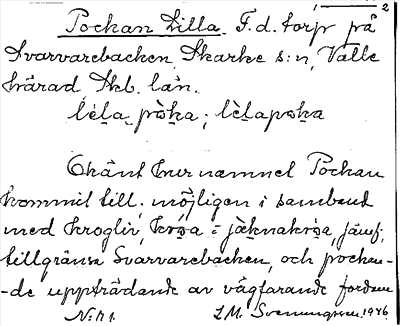 2
Pockan Lilla. F.d. torp på
Svarvarebacken, Skarke s:n, Valle
härad Skb. län.
lèla pòka; lèlapoka
Okänt hur namnet Pockan
kommit till; möjligen i samband
med krogliv, krøa = jäknakrøa, jämf.
tillgräns Svarvarebacken, och pockan-
-de uppträdande av vägfarande fordom
N:r 1. L.M. Svenungsson 1946.